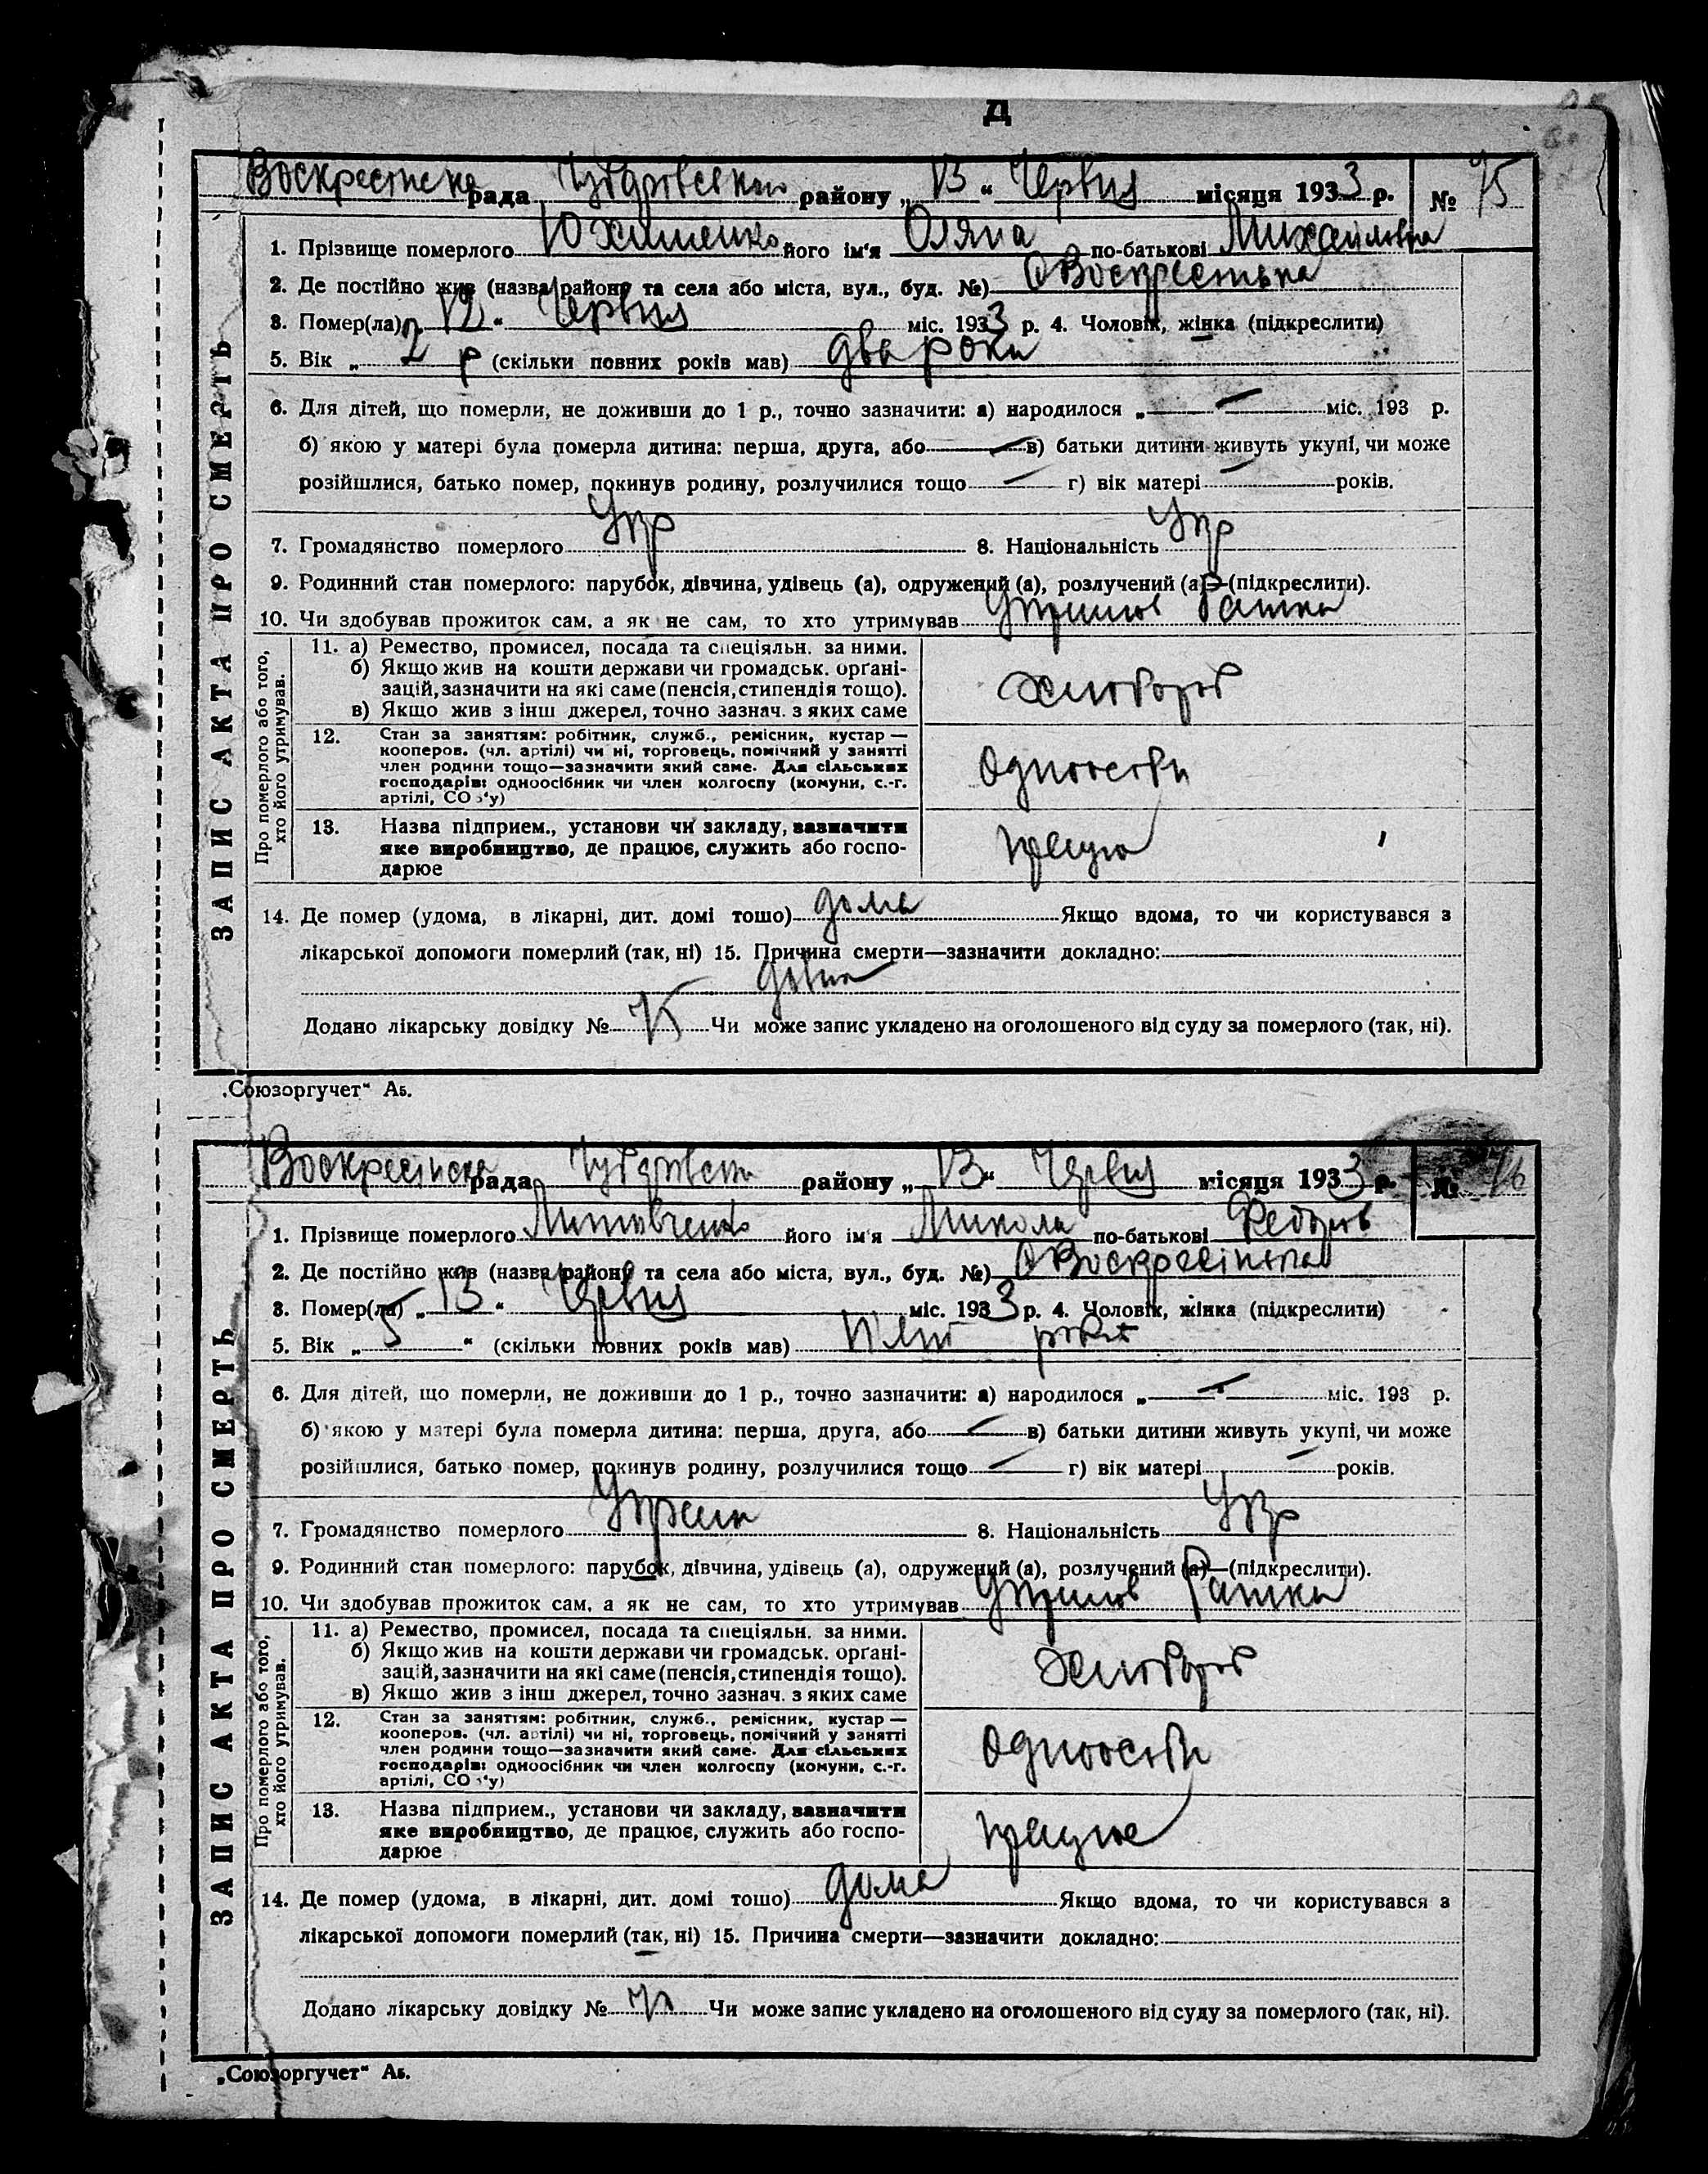 Д
Воскресінска рада Чубарівського району „13“ Червня місяця 1933 р. № 75
ЗАПИС АКТА ПРО СМЕРТЬ
1. Прізвище померлого Юхименко його ім'я Оляна по-батькові Михайловна
2. Де постійно жив (назва району та села або міста, вул., буд. №) с Воскресенька
3. Помер(ла) „12“ Червня міс. 1933 р. 4. Чоловік, жінка (підкреслити)
5. Вік „2 р (скільки повних років мав) два роки
6. Для дітей, що померли, не доживши до 1 р., точно зазначити: а) народилося „ — міс. 193 р.
б) якою у матері була померла дитина: перша, друга, або — в) батьки дитини живуть укупі, чи може
розійшлися, батько помер, покинув родину, розлучилися тощо — г) вік матері — років.
7. Громадянство померлого Укр 8. Національність Укр
9. Родинний стан померлого: парубок, дівчина, удівець (а), одружений (а), розлучений (а)—(підкреслити).
10. Чи здобував прожиток сам, а як не сам, то хто утримував
Про померлого або того, хто його утримував.
11. а) Ремество, промисел, посада та спеціяльн. за ними.
б) Якщо жив на кошти держави чи громадськ. орґані-
зацій, зазначити на які саме (пенсія, стипендія тощо).
в) Якщо жив з інш джерел, точно зазнач. з яких саме
хлібороб
12. Стан за заняттям: робітник, служб., ремісник, кустар —
кооперов. (чл. артілі) чи ні, торговець, помічний у занятті
член родини тощо—зазначити який саме. Для сільських
господарів: одноосібник чи член колгоспу (комуни, с.-г.
артілі, СОЗ'у)
13. Назва підприєм., установи чи закладу, зазначити
яке виробництво, де працює, служить або госпо-
дарює
14. Де помер (удома, в лікарні, дит. домі тошо) дома Якщо вдома, то чи користувався з
лікарської допомоги померлий (так, ні) 15. Причина смерти—зазначити докладно:
Додано лікарську довідку № 75 Чи може запис укладено на оголошеного від суду за померлого (так, ні).
„Союзоргучет“ Аб.
Воскресінска рада Чубарівськ району „13“ Червня місяця 1933 р. № 76
ЗАПИС АКТА ПРО СМЕРТЬ
1. Прізвище померлого Литовченко його ім'я Микола по-батькові Федоров
2. Де постійно жив (назва району та села або міста, вул., буд. №) с Воскресінька
3. Помер(ла) „13“ Червня міс. 1933 р. 4. Чоловік, жінка (підкреслити)
5. Вік „5“ (скільки повних років мав)
6. Для дітей, що померли, не доживши до 1 р., точно зазначити: а) народилося „ — міс. 193 р.
б) якою у матері була померла дитина: перша, друга, або — в) батьки дитини живуть укупі, чи може
розійшлися, батько помер, покинув родину, розлучилися тощо — г) вік матері — років.
7. Громадянство померлого 8. Національність Укр
9. Родинний стан померлого: парубок, дівчина, удівець (а), одружений (а), розлучений (а)—(підкреслити).
10. Чи здобував прожиток сам, а як не сам, то хто утримував
Про померлого або того, хто його утримував.
11. а) Ремество, промисел, посада та спеціяльн. за ними.
б) Якщо жив на кошти держави чи громадськ. орґані-
зацій, зазначити на які саме (пенсія, стипендія тощо).
в) Якщо жив з інш джерел, точно зазнач. з яких саме
хлібороб
12. Стан за заняттям: робітник, служб., ремісник, кустар —
кооперов. (чл. артілі) чи ні, торговець, помічний у занятті
член родини тощо—зазначити який саме. Для сільських
господарів: одноосібник чи член колгоспу (комуни, с.-г.
артілі, СОЗ'у)
13. Назва підприєм., установи чи закладу, зазначити
яке виробництво, де працює, служить або госпо-
дарює
14. Де помер (удома, в лікарні, дит. домі тошо) дома Якщо вдома, то чи користувався з
лікарської допомоги померлий (так, ні) 15. Причина смерти—зазначити докладно:
Додано лікарську довідку № Чи може запис укладено на оголошеного від суду за померлого (так, ні).
„Союзоргучет“ Аб.